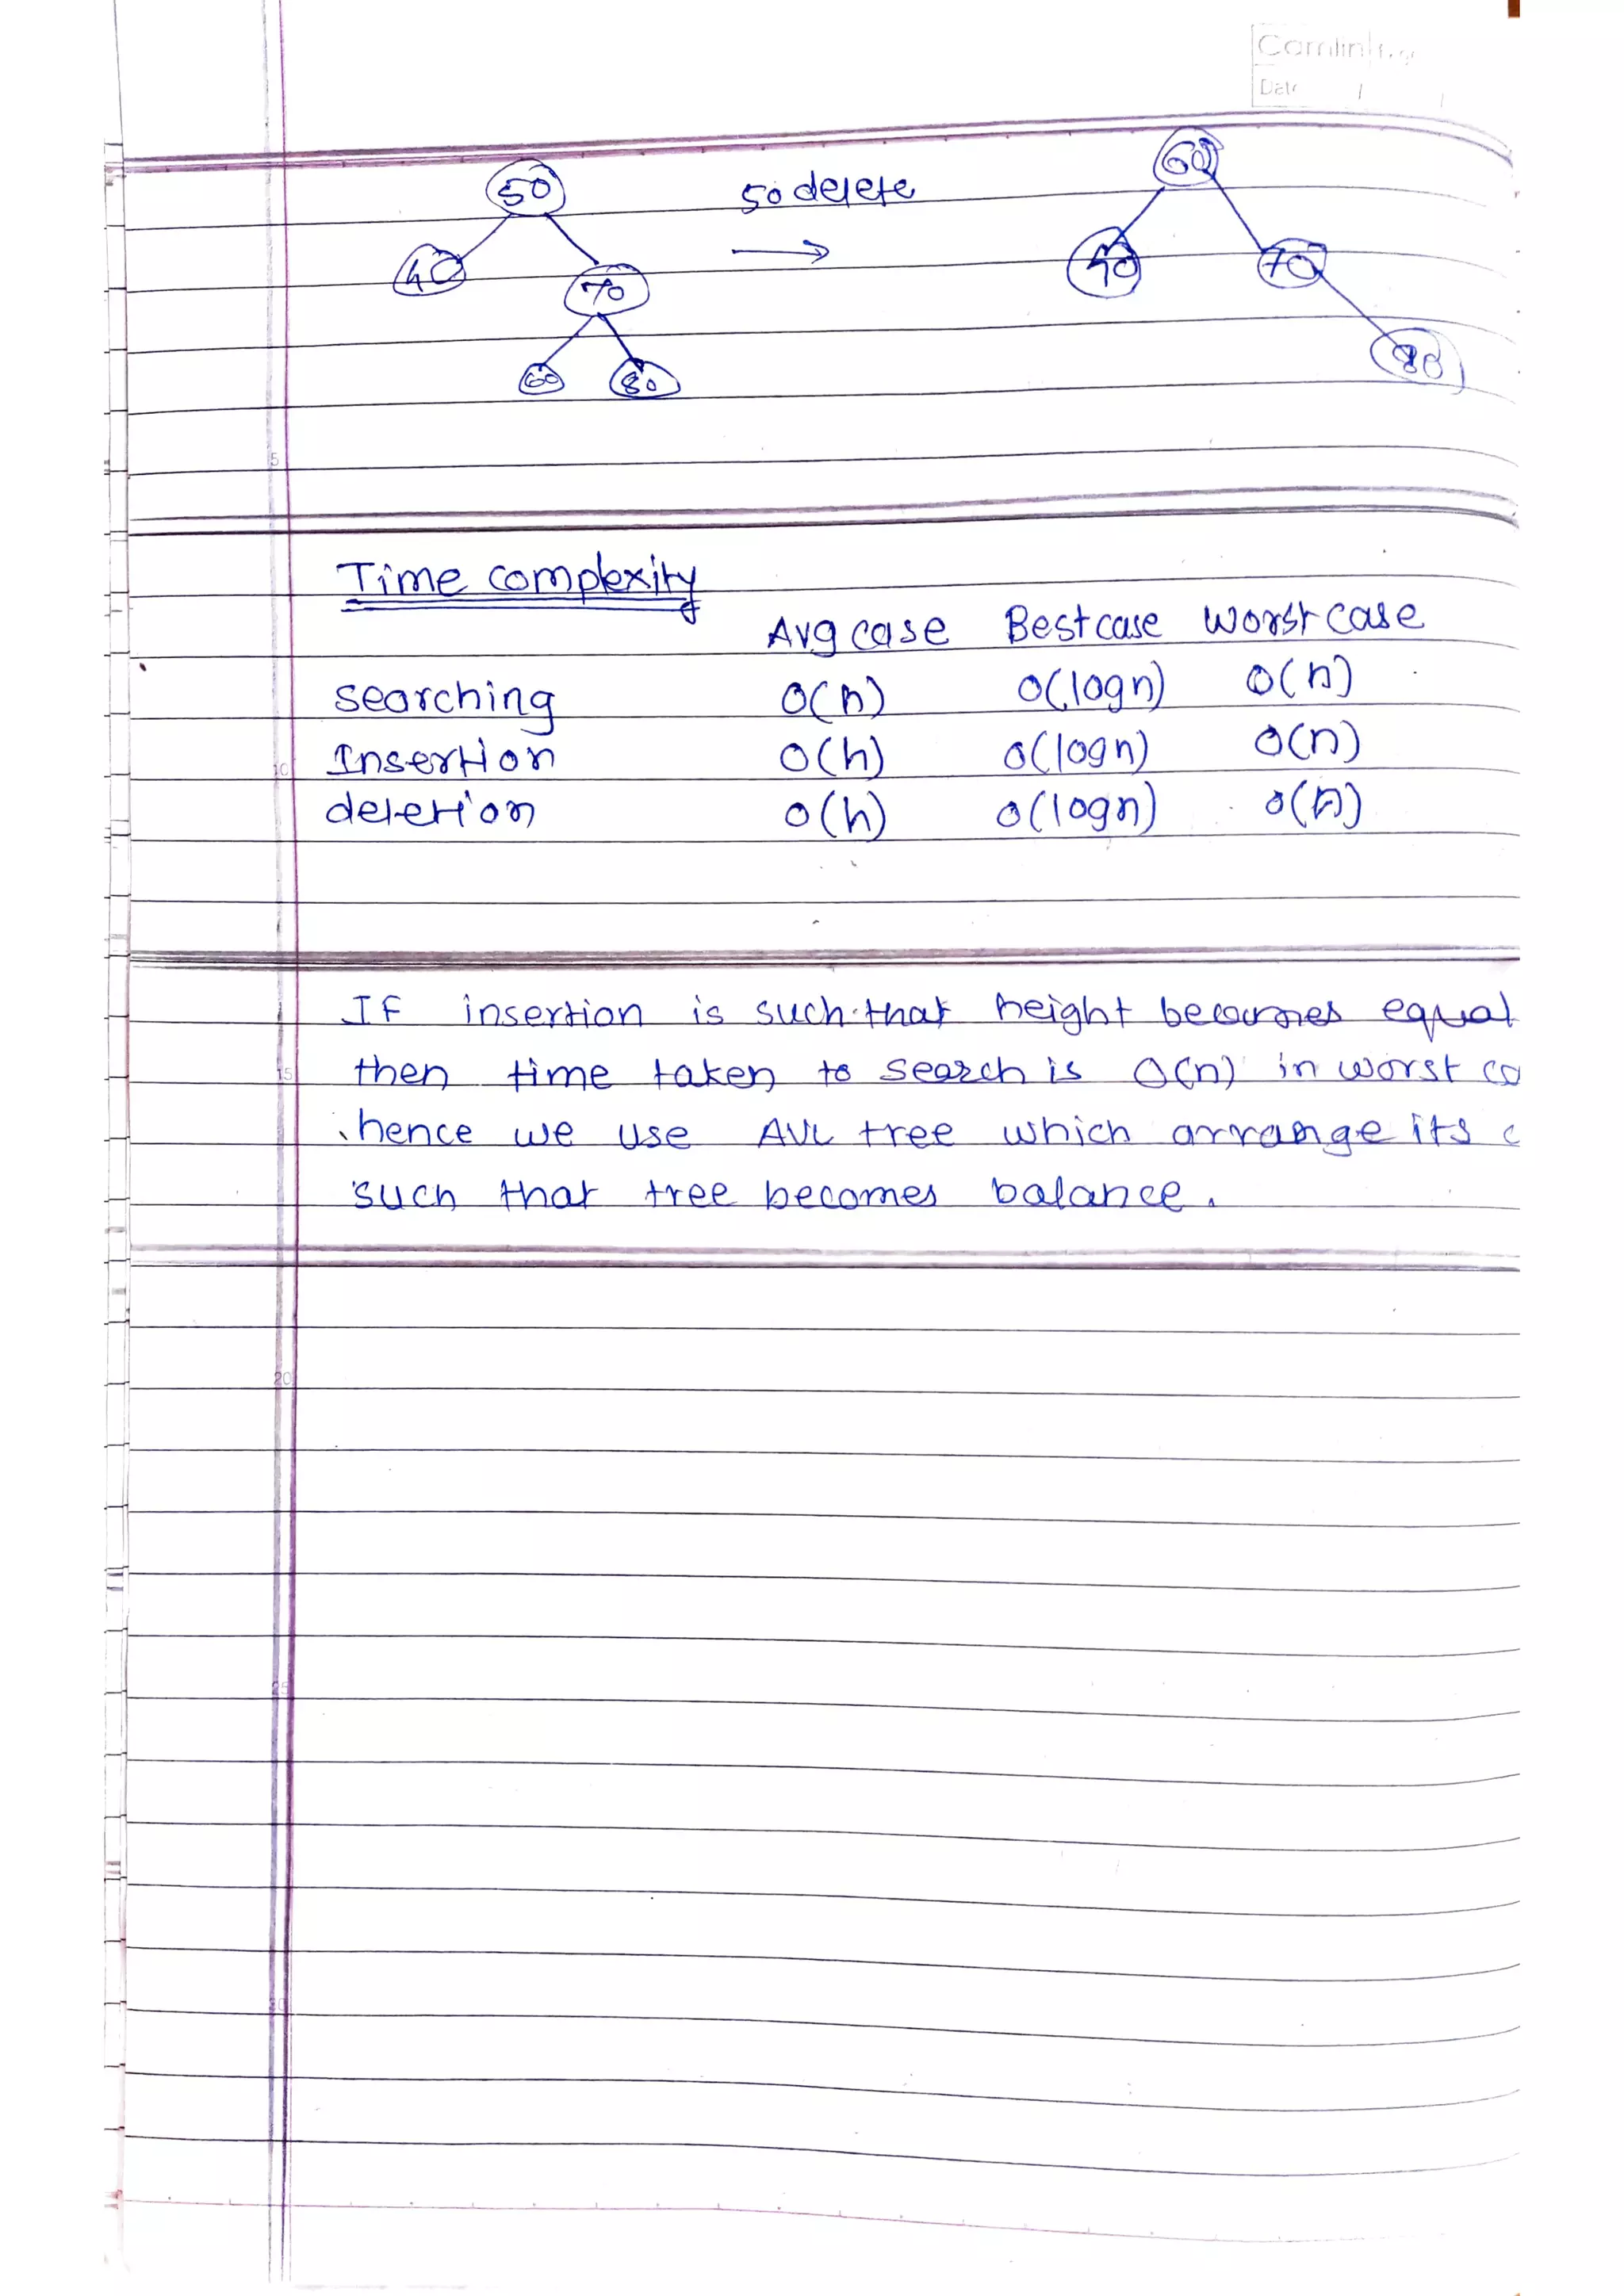 Camlin
Date / /
50 50 delete 60
40 70 → 40 70
60 80 80
Time complexity
Avg case Best case Worst case
searching O(h) O(logn) O(n)
Insertion O(h) O(logn) O(n)
deletion O(h) O(logn) O(n)
If insertion is such that height becomes equal
then time taken to search is O(n) in worst
hence we use AVL tree which arrange its
such that tree becomes balance.
5
10
15
20
25